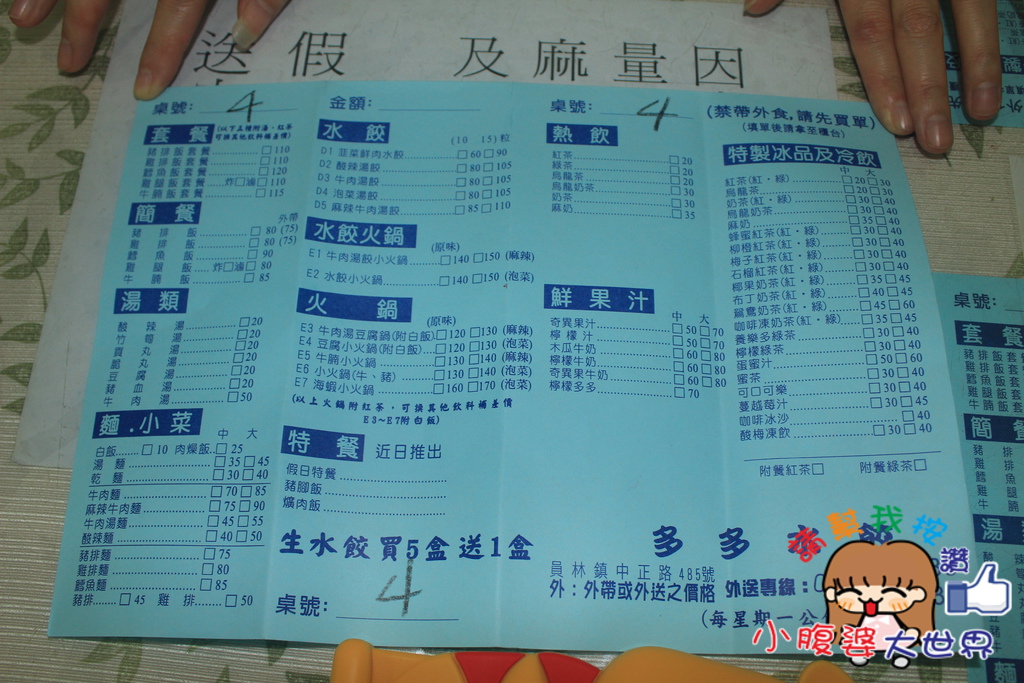 送假 及麻量因
桌號: 4
套餐 (以下并樓附湯、紅茶
可換其他飲料補差價)
豬排飯套餐 □110
雞排飯套餐 □110
鱈魚飯套餐 □120
雞腿飯套餐 炸□滷□110
牛腩飯套餐 □115
簡餐 外帶
豬排飯 □80 (75)
雞排飯 □80 (75)
鱈魚飯 □90
雞腿飯 炸□滷□80
牛腩飯 □85
湯類
酸辣湯 □20
竹筍湯 □20
貢丸湯 □20
脆丸湯 □20
豆腐湯 □20
豬血湯 □20
牛肉湯 □50
麵.小菜 中 大
白飯 □10 肉燥飯 □25
湯麵 □35 □45
乾麵 □30 □40
牛肉麵 □70 □85
麻辣牛肉麵 □75 □90
牛肉湯麵 □45 □55
酸辣麵 □40 □50
豬排麵 □75
雞排麵 □80
鱈魚麵 □85
豬排 □45 雞排 □50
金額:
水餃 (10 15)粒
D1 韮菜鮮肉水餃 □60 □90
D2 酸辣湯餃 □80 □105
D3 牛肉湯餃 □80 □105
D4 泡菜湯餃 □80 □105
D5 麻辣牛肉湯餃 □85 □110
水餃火鍋 (原味)
E1 牛肉湯餃小火鍋 □140 □150 (麻辣)
E2 水餃小火鍋 □140 □150 (泡菜)
火鍋 (原味)
E3 牛肉湯豆腐鍋(附白飯) □120 □130 (麻辣)
E4 豆腐小火鍋(附白飯) □120 □130 (泡菜)
E5 牛腩小火鍋 □130 □140 (麻辣)
E6 小火鍋(牛、豬) □130 □140 (泡菜)
E7 海蝦小火鍋 □160 □170 (泡菜)
(以上火鍋附紅茶，可換其他飲料補差價
E3~E7附白飯)
特餐 近日推出
假日特餐
豬腳飯
爌肉飯
生水餃買5盒送1盒
桌號: 4
桌號: 4
熱飲
紅茶 □20
綠茶 □20
烏龍茶 □20
烏龍奶茶 □30
奶茶 □30
麻奶 □35
鮮果汁 中 大
奇異果汁 □50 □70
檸檬汁 □50 □70
木瓜牛奶 □60 □80
檸檬牛奶 □60 □80
奇異果牛奶 □60 □80
檸檬多多 □70
(禁帶外食,請先買單)
(填單後請拿至櫃台)
特製冰品及冷飲
中 大
紅茶(紅・綠) □20 □30
烏龍茶 □20 □30
奶茶(紅・綠) □30 □40
烏龍奶茶 □30 □40
麻奶 □35 □40
蜂蜜紅茶(紅・綠) □30 □40
柳橙紅茶(紅・綠) □30 □40
梅子紅茶(紅・綠) □30 □40
石榴紅茶(紅・綠) □30 □40
椰果奶茶(紅・綠) □40 □45
布丁奶茶(紅・綠) □40 □45
鴛鴦奶茶(紅・綠) □45 □60
咖啡凍奶茶(紅・綠) □35 □45
養樂多綠茶 □30 □40
檸檬綠茶 □30 □40
蛋蜜汁 □50 □60
蜜茶 □30 □40
可口可樂 □30
蔓越莓汁 □30 □45
咖啡冰沙 □40
酸梅凍飲 □30 □40
附餐紅茶□ 附餐綠茶□
多多
員林鎮中正路485號
外：外帶或外送之價格 外送專線:
(每星期一公
請幫我按讚
小腹婆大世界
桌號:
套餐
豬排飯套
雞排飯套
鱈魚飯套
雞腿飯套
牛腩飯套
簡餐
豬排
雞排
鱈魚
雞腿
牛腩
湯